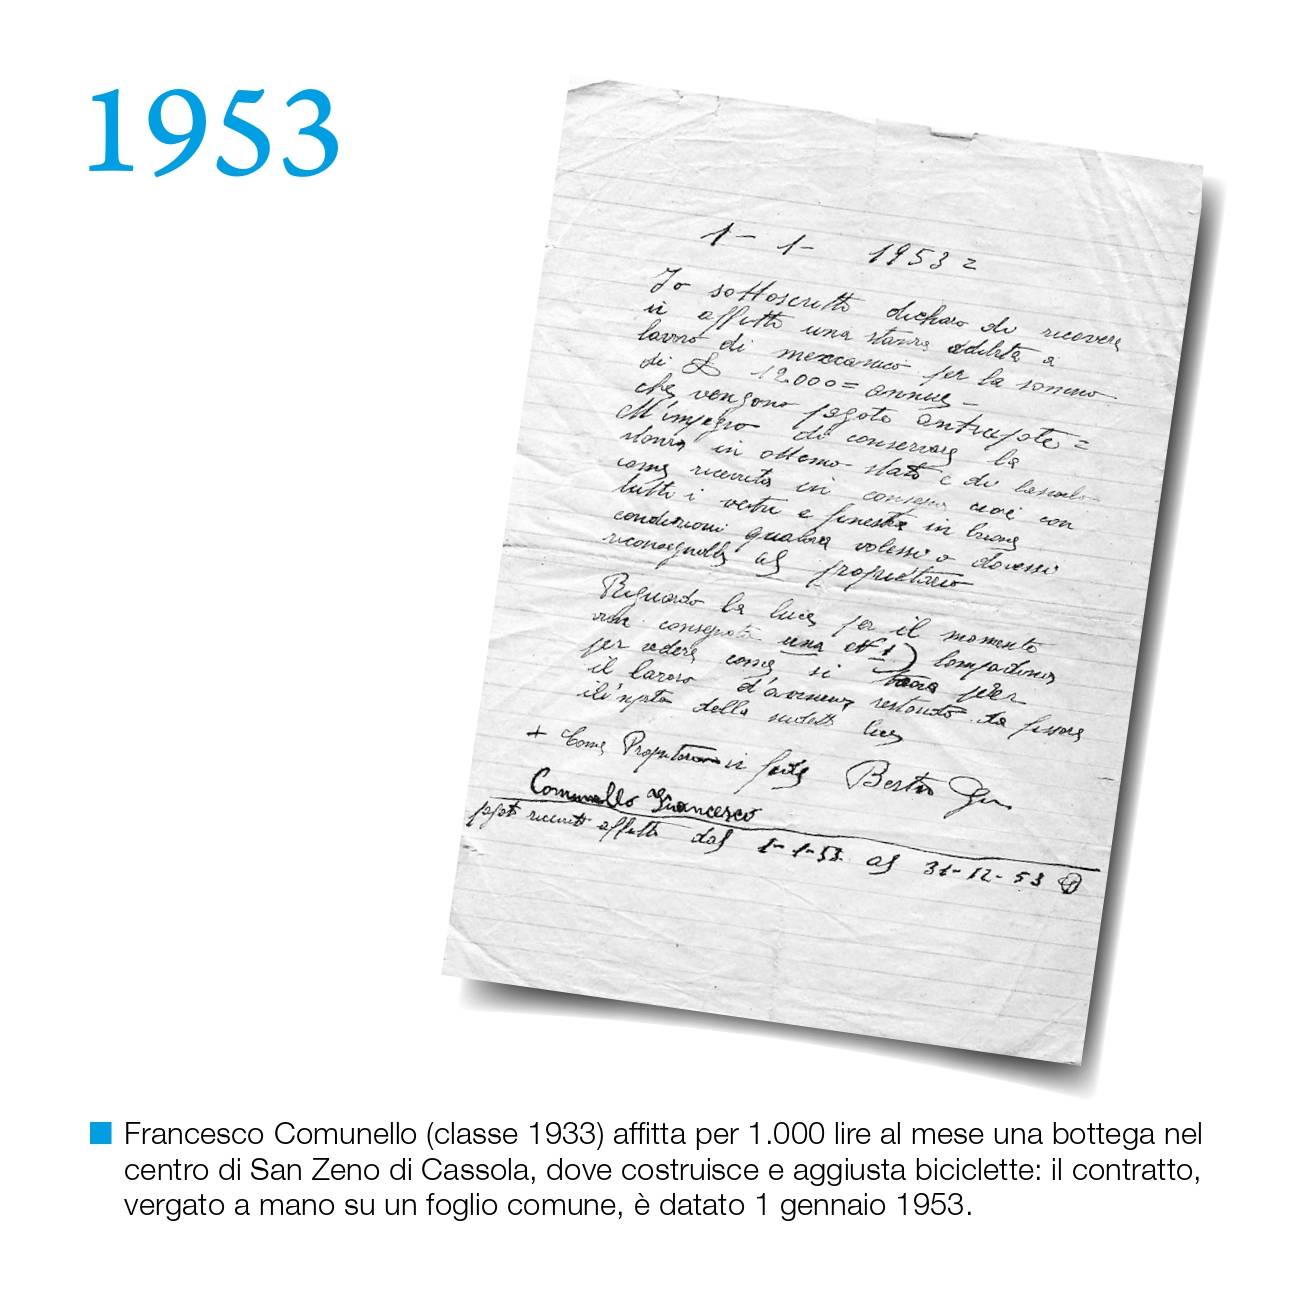 1953
1 - 1 - 1953 =
Io sottoscritto dichiaro di ricevere
in affitto una stanza adibita a
lavoro di meccanico per la somma
di £ 12.000 = annue -
che vengono pagate anticipate =
M'impegno di conservare la
stanza in ottimo stato e di
come ricevuta in consegna cioè con
tutti i vetri e finestre in buone
condizioni qualora volessi o dovessi
riconsegnarla al proprietario
Riguardo la luce per il momento
consegnata una N 1) lampadina
per vedere come si per
il lavoro d'avvenire restando da fissare
della sudetta luce
+ Come Proprietario in fede
Comunello Francesco
pagato ricevuto affitto dal 1-1-53 al 31-12-53
Francesco Comunello (classe 1933) affitta per 1.000 lire al mese una bottega nel
centro di San Zeno di Cassola, dove costruisce e aggiusta biciclette: il contratto,
vergato a mano su un foglio comune, è datato 1 gennaio 1953.